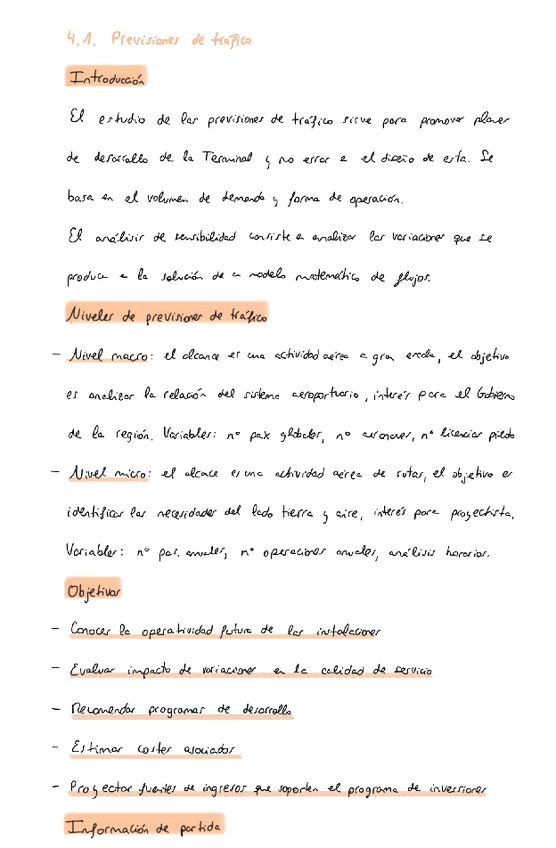 4.1. Previsiones de tráfico
Introducción
El estudio de las previsiones de tráfico sirve para promover planes
de desarrollo de la Terminal y no errar e el diseño de esta. Se
basa en el volumen de demanda y forma de operación.
El análisis de sensibilidad consiste en analizar las variaciones que se
produce e la solución de u modelo matemático de flujos.
Niveles de previsiones de tráfico
- Nivel macro: el alcance es una actividad aérea a gran escala, el objetivo
es analizar la relación del sistema aeroportuario, interés para el Gobierno
de la región. Variables: nº pax globales, nº aeronaves, nº licencias piloto
- Nivel micro: el alcace es una actividad aérea de rutas, el objetivo es
identificar las necesidades del lado tierra y aire, interés para proyectista.
Variables: nº pas. anuales, nº operaciones anuales, análisis horarios.
Objetivos
- Conocer la operatividad futura de las instalaciones
- Evaluar impacto de variaciones en la calidad de servicio
- Recomendar programas de desarrollo
- Estimar costes asociados
- Proyectar fuentes de ingresos que soporten el programa de inversiones
Información de partida